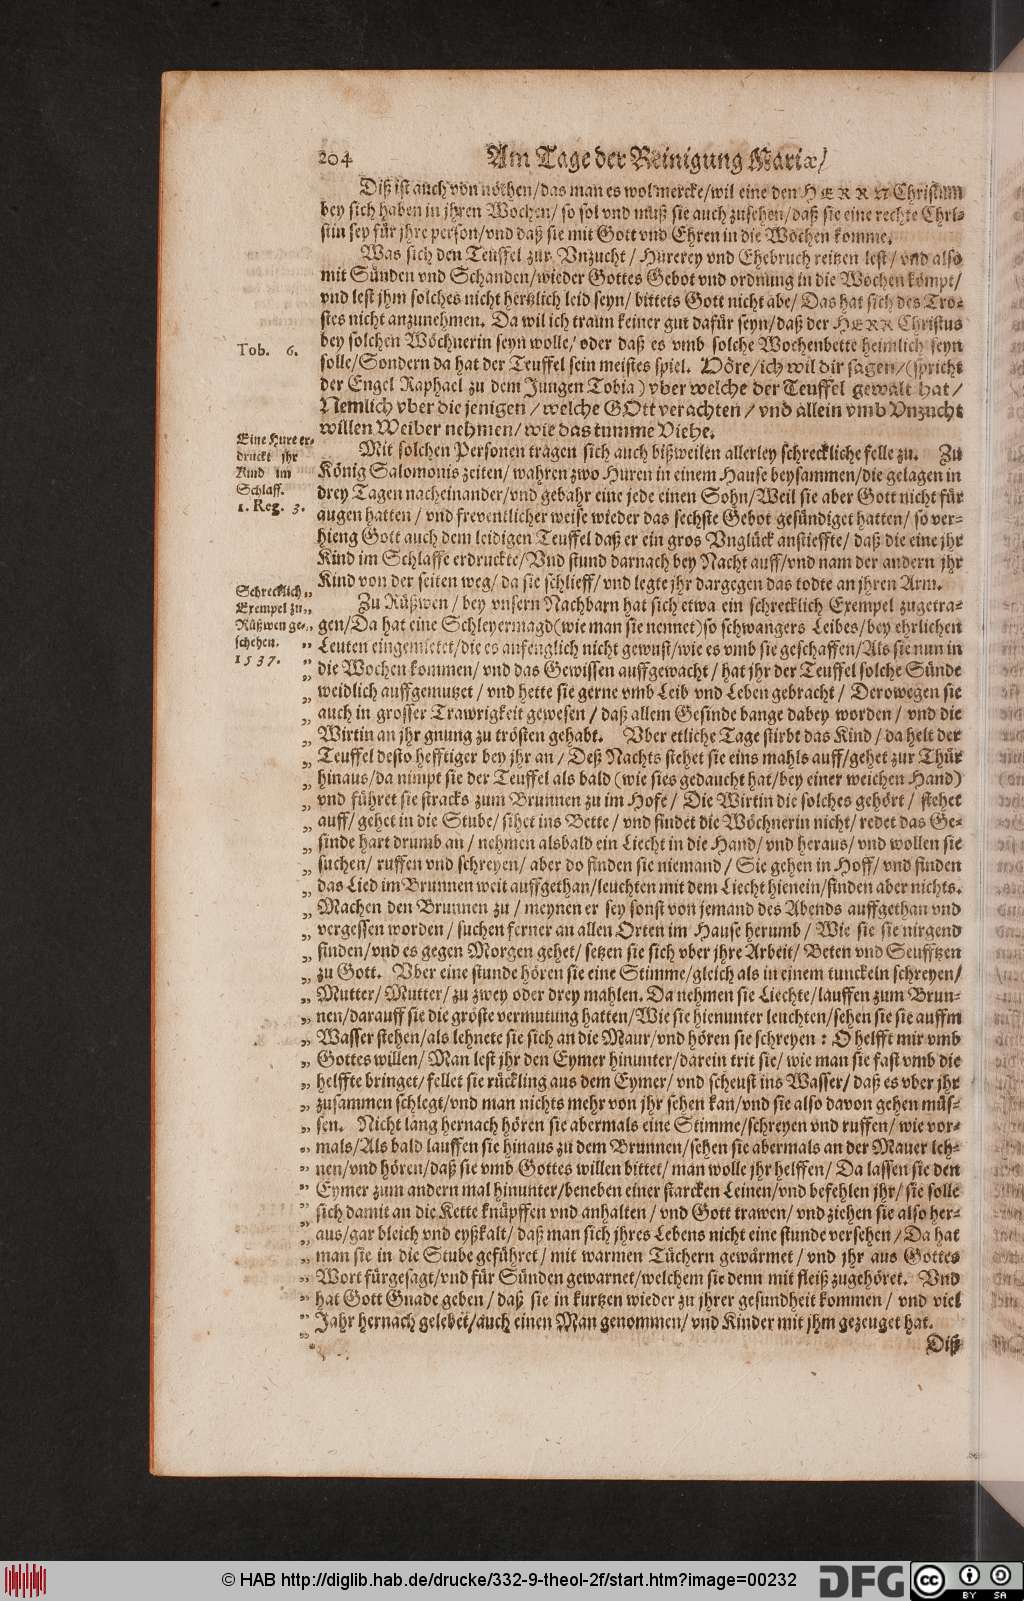 204 Am Tage der Reinigung Mariæ/
Diß ist auch von nöthen/das man es wol mercke/wil eine den HERRN Christum
bey sich haben in jhren Wochen/ so sol vnd muß sie auch zusehen/daß sie eine rechte Chri-
stin sey für jhre person/vnd daß sie mit Gott vnd Ehren in die Wochen komme.
Was sich den Teuffel zur Vnzucht/ Hurerey vnd Ehebruch reitzen lest/ vnd also
mit Sünden vnd Schanden/wieder Gottes Gebot vnd ordnung in die Wochen kömpt/
vnd lest jhm solches nicht hertzlich leid seyn/ bittets Gott nicht abe/ Das hat sich des Tro-
stes nicht anzunehmen. Da wil ich traun keiner gut dafür seyn/daß der HERR Christus
bey solchen Wöchnerin seyn wolle/ oder daß es vmb solche Wochenbette heimlich seyn
solle/Sondern da hat der Teuffel sein meistes spiel. Höre/ich wil dir sagen/(spricht
der Engel Raphael zu dem Jungen Tobia) vber welche der Teuffel gewalt hat/
Nemlich vber die jenigen/welche GOtt verachten/ vnd allein vmb Vnzucht
willen Weiber nehmen/ wie das tumme Viehe.
Tob. 6.
Mit solchen Personen tragen sich auch bißweilen allerley schreckliche felle zu. Zu
König Salomonis zeiten/ wahren zwo Huren in einem Hause beysammen/die gelagen in
drey Tagen nacheinander/vnd gebahr eine jede einen Sohn/Weil sie aber Gott nicht für
augen hatten/ vnd freventlicher weise wieder das sechste Gebot gesündiget hatten/ so ver-
hieng Gott auch dem leidigen Teuffel daß er ein gros Vnglück anstieffte/ daß die eine jhr
Kind im Schlaffe erdruckte/Vnd stund darnach bey Nacht auff/vnd nam der andern jhr
Kind von der seiten weg/ da sie schlieff/ vnd legte jhr dargegen das todte an jhren Arm.
Eine Hure er-
druckt jhr
Kind im
Schlaff.
1. Reg. 3.
Zu Rüßwen/ bey vnsern Nachbarn hat sich etwa ein schrecklich Exempel zugetra-
gen/Da hat eine Schleyermagd(wie man sie nennet)so schwangers Leibes/bey ehrlichen
Leuten eingemietet/die es anfenglich nicht gewust/wie es vmb sie geschaffen/Als sie nun in
die Wochen kommen/ vnd das Gewissen auffgewacht/ hat jhr der Teuffel solche Sünde
weidlich auffgemutzet/ vnd hette sie gerne vmb Leib vnd Leben gebracht/ Derowegen sie
auch in grosser Trawrigkeit gewesen/ daß allem Gesinde bange dabey worden/ vnd die
Wirtin an jhr gnung zu trösten gehabt. Vber etliche Tage stirbt das Kind/ da helt der
Teuffel desto hefftiger bey jhr an/ Deß Nachts stehet sie eins mahls auff/gehet zur Thür
hinaus/da nimpt sie der Teuffel als bald (wie sies gedaucht hat/bey einer weichen Hand)
vnd führet sie stracks zum Brunnen zu im Hofe/ Die Wirtin die solches gehört/ stehet
auff/ gehet in die Stube/ sihet ins Bette/ vnd findet die Wöchnerin nicht/ redet das Ge-
sinde hart drumb an/ nehmen alsbald ein Liecht in die Hand/ vnd heraus/ vnd wollen sie
suchen/ ruffen vnd schreyen/ aber do finden sie niemand/ Sie gehen in Hoff/ vnd finden
das Lied im Brunnen weit auffgethan/leuchten mit dem Liecht hienein/finden aber nichts.
Machen den Brunnen zu/ meynen er sey sonst von jemand des Abends auffgethan vnd
vergessen worden/ suchen ferner an allen Orten im Hause herumb/ Wie sie sie nirgend
finden/vnd es gegen Morgen gehet/ setzen sie sich vber jhre Arbeit/ Beten vnd Seufftzen
zu Gott. Vber eine stunde hören sie eine Stimme/gleich als in einem tunckeln schreyen/
Mutter/ Mutter/ zu zwey oder drey mahlen. Da nehmen sie Liechte/lauffen zum Brun-
nen/darauff sie die gröste vermutung hatten/Wie sie hienunter leuchten/sehen sie sie auffm
Wasser stehen/als lehnete sie sich an die Maur/vnd hören sie schreyen: O helfft mir vmb
Gottes willen/ Man lest jhr den Eymer hinunter/darein trit sie/ wie man sie fast vmb die
helffte bringet/fellet sie rückling aus dem Eymer/ vnd scheust ins Wasser/ daß es vber jhr
zusammen schlegt/vnd man nichts mehr von jhr sehen kan/vnd sie also davon gehen müs-
sen. Nicht lang hernach hören sie abermals eine Stimme/schreyen vnd ruffen/ wie vor-
mals/Als bald lauffen sie hinaus zu dem Brunnen/sehen sie abermals an der Mauer leh-
nen/vnd hören/daß sie vmb Gottes willen bittet/ man wolle jhr helffen/ Da lassen sie den
Eymer zum andern mal hinunter/beneben einer starcken Leinen/vnd befehlen jhr/ sie solle
sich damit an die Kette knüpffen vnd anhalten/ vnd Gott trawen/ vnd ziehen sie also her-
aus/gar bleich vnd eyßkalt/ daß man sich jhres Lebens nicht eine stunde versehen/ Da hat
man sie in die Stube geführet/ mit warmen Tüchern gewärmet/ vnd jhr aus Gottes
Wort fürgesagt/vnd für Sünden gewarnet/welchem sie denn mit fleiß zugehöret. Vnd
hat Gott Gnade geben/ daß sie in kurtzen wieder zu jhrer gesundheit kommen/ vnd viel
Jahr hernach gelebet/auch einen Man genommen/ vnd Kinder mit jhm gezeuget hat.
Schrecklich
Exempel zu
Rüßwen ge-
schehen.
1537.
Diß
© HAB http://diglib.hab.de/drucke/332-9-theol-2f/start.htm?image=00232
DFG
cc BY SA